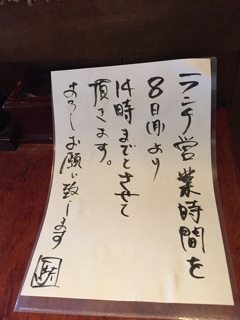 ランチ営業時間を
8日(月)より
14時までとさせて
頂きます。
よろしお願い致します